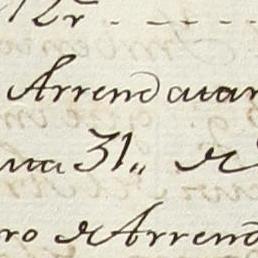 12r
Arrendavar
uta 31,, de
ro de Arrend